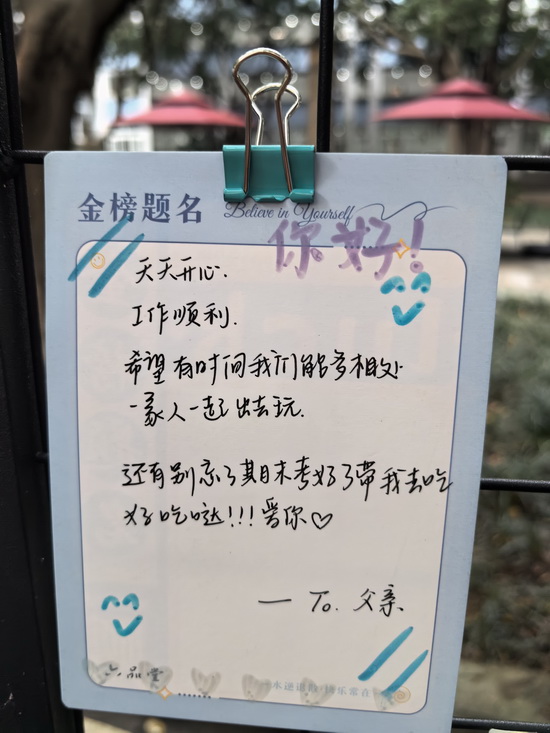 金榜题名
Believe in Yourself
你好!
天天开心.
工作顺利.
希望有时间我们能多相处
一家人一起出去玩.
还有别忘了期末考好了带我去吃
好吃哒!!! 爱你♡
— To. 父亲
六品堂